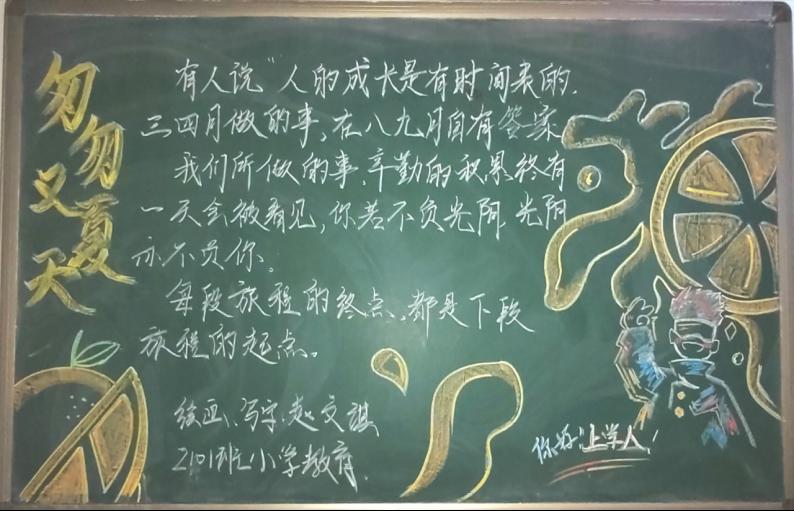 匆匆又夏天
有人说“人的成长是有时间表的.
三四月做的事,在八九月自有答案
我们所做的事,辛勤的积累终有
一天会被看见,你若不负光阴,光阴
亦不负你。
每段旅程的终点,都是下段
旅程的起点。
绘画、写字:赵文祺
2101班小学教育
你好!上学人!